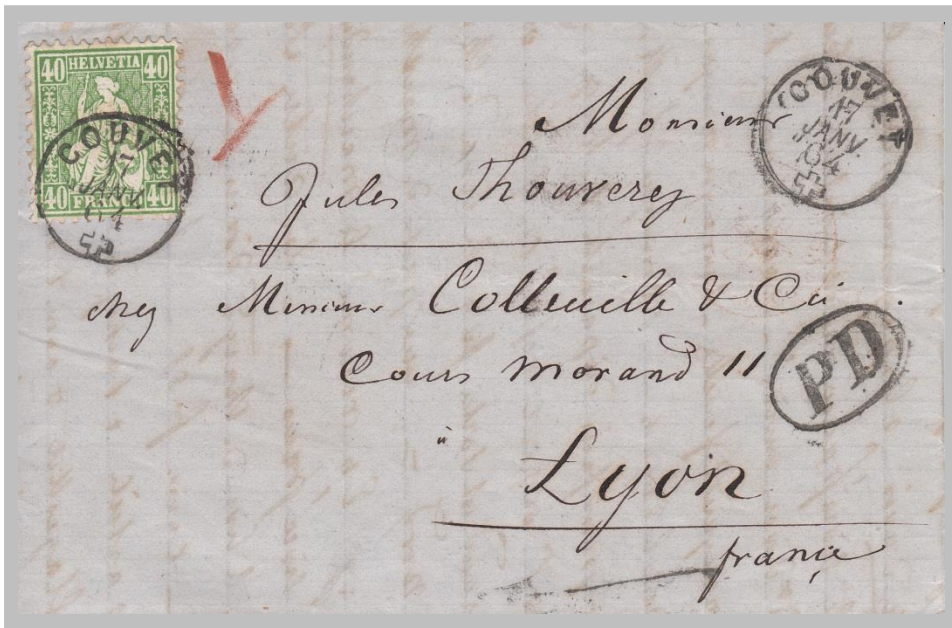 40 HELVETIA 40
40 FRANCO 40
COUVET
17
JANV
64
COUVET
17
JANV
64
Monsieur
Jules Thouverey
chez Monsieur Colleuille & Cie
Cours Morand 11
PD
à
Lyon
france